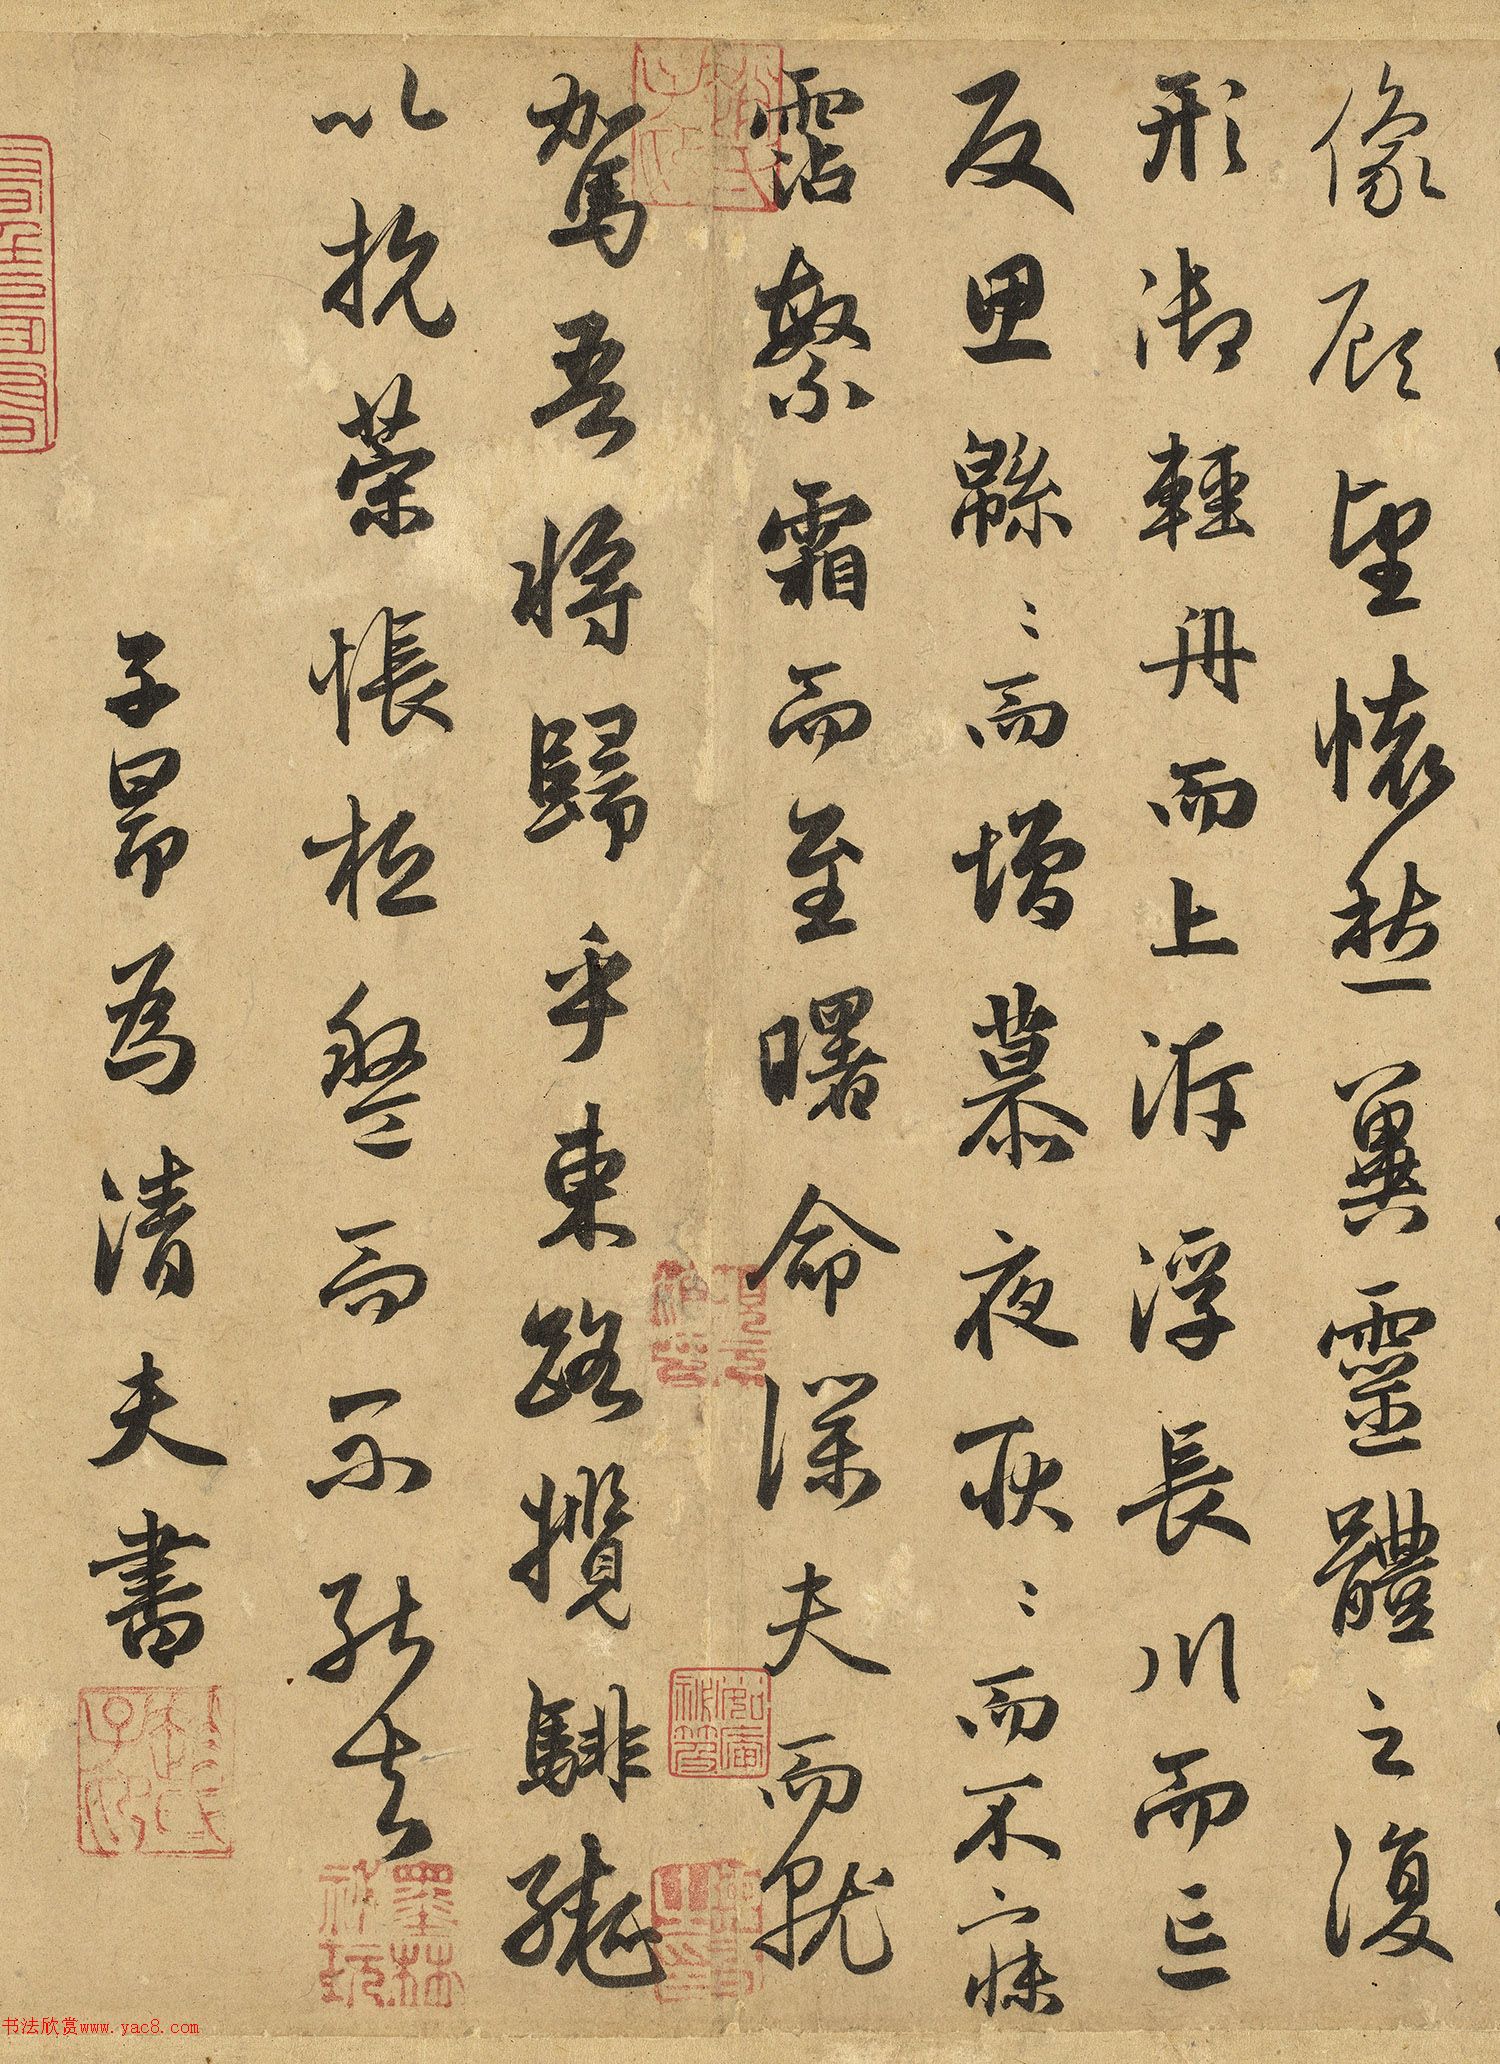 像顧望懷愁兾靈體之復
形御輕舟而上泝浮長川而忘
反思緜〻而增慕夜耿〻而不寐
霑繁霜而至曙命僕夫而就
駕吾將歸乎東路攬騑轡
以抗策悵桓盤而不能去
子昂為清夫書
趙氏子昂
墨林祕玩
項元汴印
書法欣賞www.yac8.com